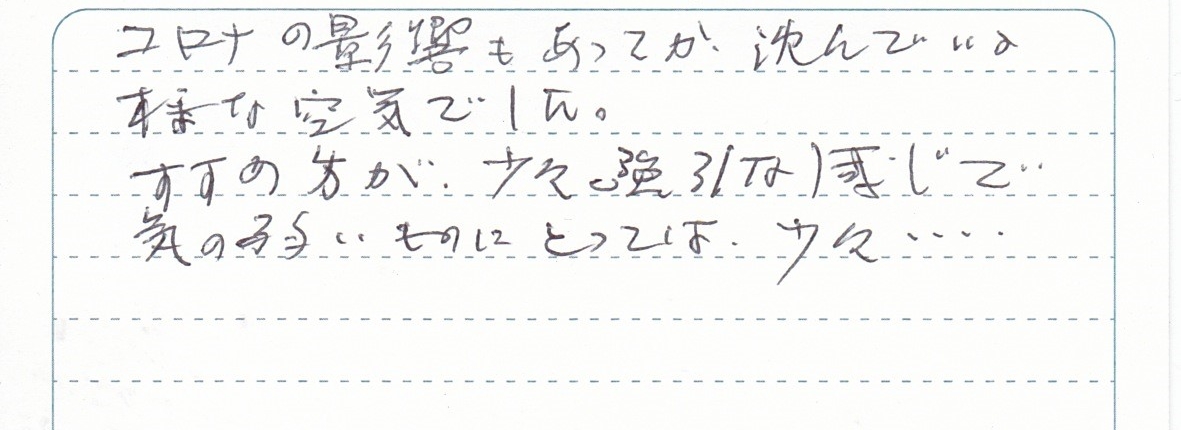 コロナの影響もあってか、沈んでいる
様な空気でした。
すすめ方が、少々強引な感じで
気の弱いものにとっては、少々････